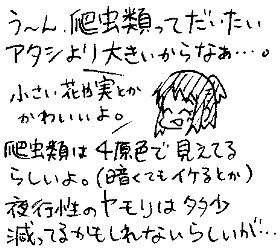 う～ん、爬虫類ってだいたい
アタシより大きいからなぁ…。
小さい花や実とか
かわいいよ。
爬虫類は4原色で見えてる
らしいよ。(暗くてもイケるとか)
夜行性のヤモリは多少
減ってるかもしれないらしいが…